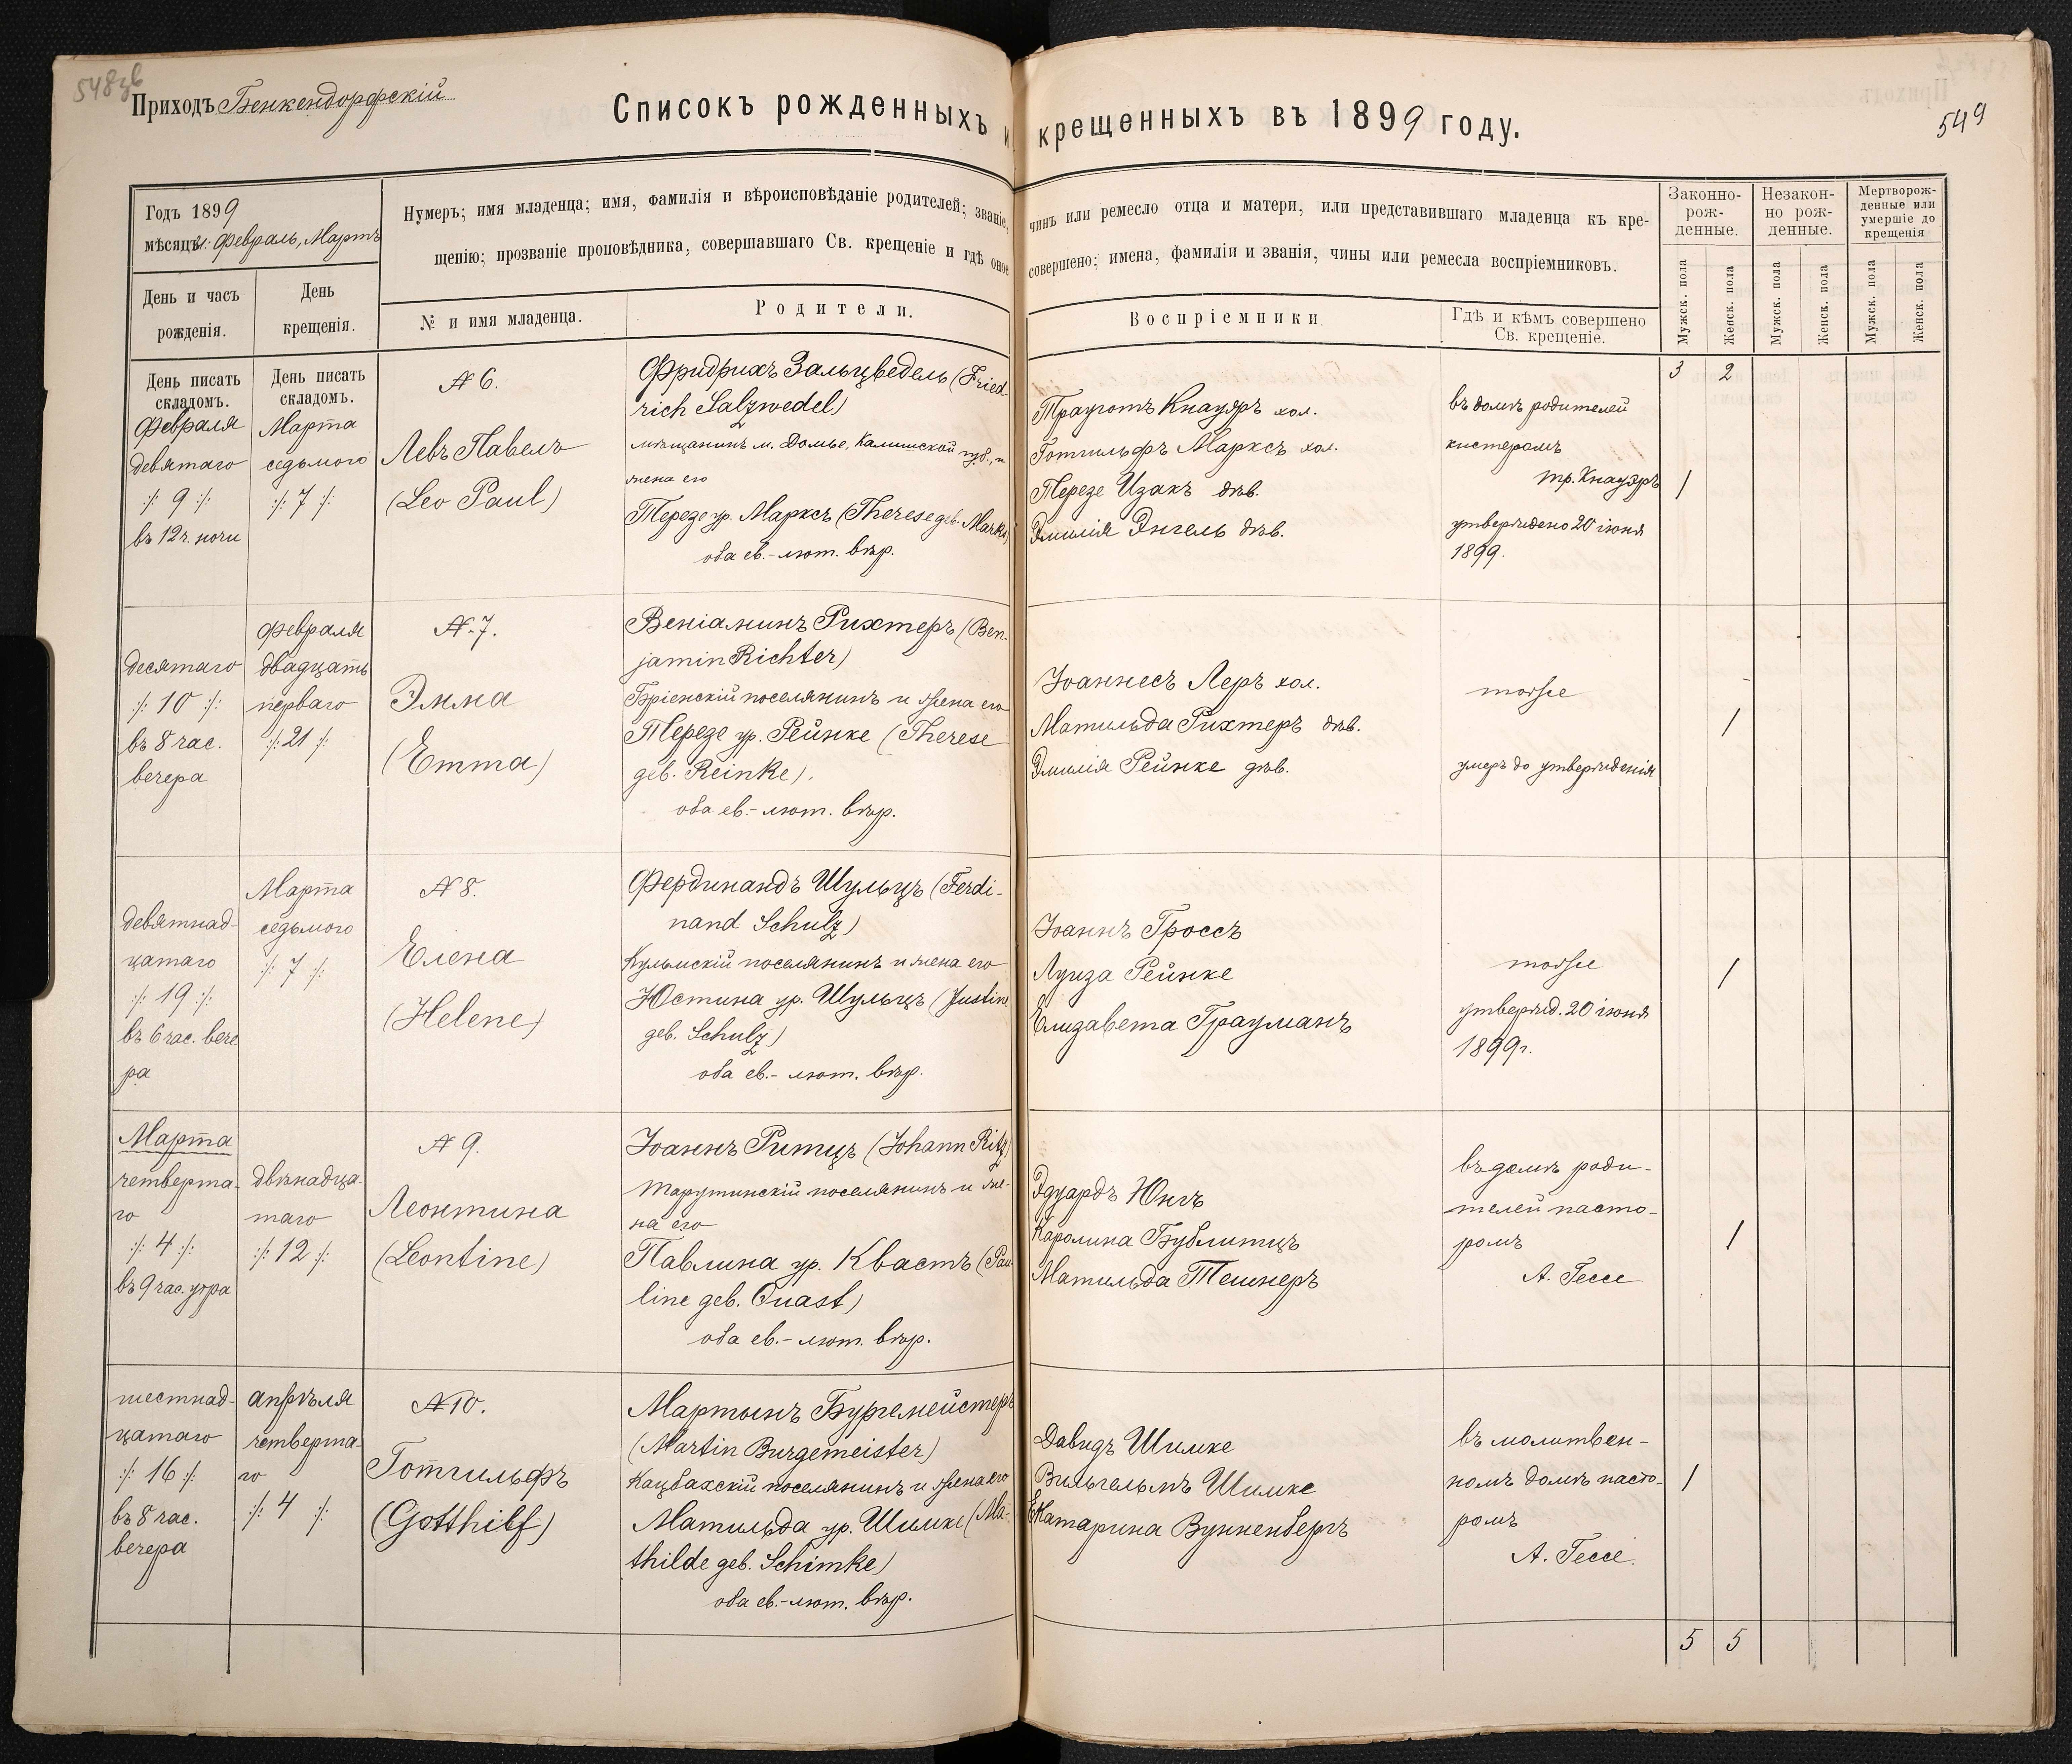 548зв
Приходъ Бенкендорфскій
Списокъ рожденныхъ и крещенныхъ въ 1899 году.
549
Годъ 1899
мѣсяцъ: Февраль, Мартъ
Нумеръ; имя младенца; имя, фамилія и вѣроисповѣданіе родителей; званіе, чинъ или ремесло отца и матери, или представившаго младенца къ кре-
щенію; прозваніе проповѣдника, совершавшаго Св. крещеніе и гдѣ оное совершено; имена, фамиліи и званія, чины или ремесла воспріемниковъ.
Законно-
рож-
денные.
Незакон-
но рож-
денные.
Мертворож-
денные или
умершіе до
крещенія
День и часъ
рожденія.
День
крещенія.
№ и имя младенца.
Родители.
Воспріемники
Гдѣ и кѣмъ совершено
Св. крещеніе.
Мужск. пола
Женск. пола
Мужск. пола
Женск. пола
Мужск. пола
Женск. пола
День писать
складомъ.
День писать
складомъ.
3 2
Февраля
девятаго
:/: 9 :/:
въ 12 ч. ночи
Марта
седьмого
:/: 7 :/:
№ 6.
Левъ Павелъ
(Leo Paul)
Фридрихъ Зальцведель (Fried-
rich Salzwedel)
мѣщанинъ м. Домье, Калишской губ., и
жена его
Терезе ур. Марксъ (Therese geb. Marks)
оба ев.-лют. вѣр.
Трауготъ Кнауэръ хол.
Готгильфъ Марксъ хол.
Терезе Изакъ дѣв.
Эмилія Энгель дѣв.
въ домѣ родителей
кистеромъ
Тр. Кнауэръ
утверждено 20 іюня
1899.
1
десятаго
:/: 10 :/:
въ 8 час.
вечера
Февраля
двадцать
перваго
:/: 21 :/:
№ 7.
Эмма
(Emma)
Веніаминъ Рихтеръ (Ben-
jamin Richter)
Бріенскій поселянинъ и жена его
Терезе ур. Рейнке (Therese
geb. Reinke).
оба ев.-лют. вѣр.
Іоаннесъ Леръ хол.
Матильда Рихтеръ дѣв.
Эмилія Рейнке дѣв.
тоже
умеръ до утвержденія
1
девятнад-
цатаго
:/: 19 :/:
въ 6 час. вече
ра
Марта
седьмого
:/: 7 :/:
№ 8.
Елена
(Helene)
Фердинандъ Шульцъ (Ferdi-
nand Schulz)
Кульмскій поселянинъ и жена его
Юстина ур. Шульцъ (Justine
geb. Schulz)
оба ев.-лют. вѣр.
Іоаннъ Гроссъ
Луиза Рейнке
Елизавета Грауманъ
тоже
утвержд. 20 іюня
1899 г.
1
Марта
четверта-
го
:/: 4 :/:
въ 9 час. утра
двѣнадца-
таго
:/: 12 :/:
№ 9.
Леонтина
(Leontine)
Іоаннъ Ритцъ (Johann Ritz)
Тарутинскій поселянинъ и же-
на его
Павлина ур. Квастъ (Pau
line geb. Quast)
оба ев.-лют. вѣр.
Эдуардъ Юнгъ
Каролина Бублитцъ
Матильда Тешнеръ
въ домѣ роди-
телей пасто-
ромъ
А. Гессе
1
шестнад-
цатаго
:/: 16 :/:
въ 8 час.
вечера
апрѣля
четверта-
го
:/: 4 :/:
№ 10.
Готгильфъ
(Gotthilf)
Мартынъ Бургемейстеръ
(Martin Burgemeister)
Кацбахскій поселянинъ и жена его
Матильда ур. Шимке (Ma-
thilde geb. Schimke)
оба ев.-лют. вѣр.
Давидъ Шимке
Вильгельмъ Шимке
Екатарина Вунненбергъ
въ молитвен-
номъ домѣ пасто-
ромъ
А. Гессе.
1
5 5